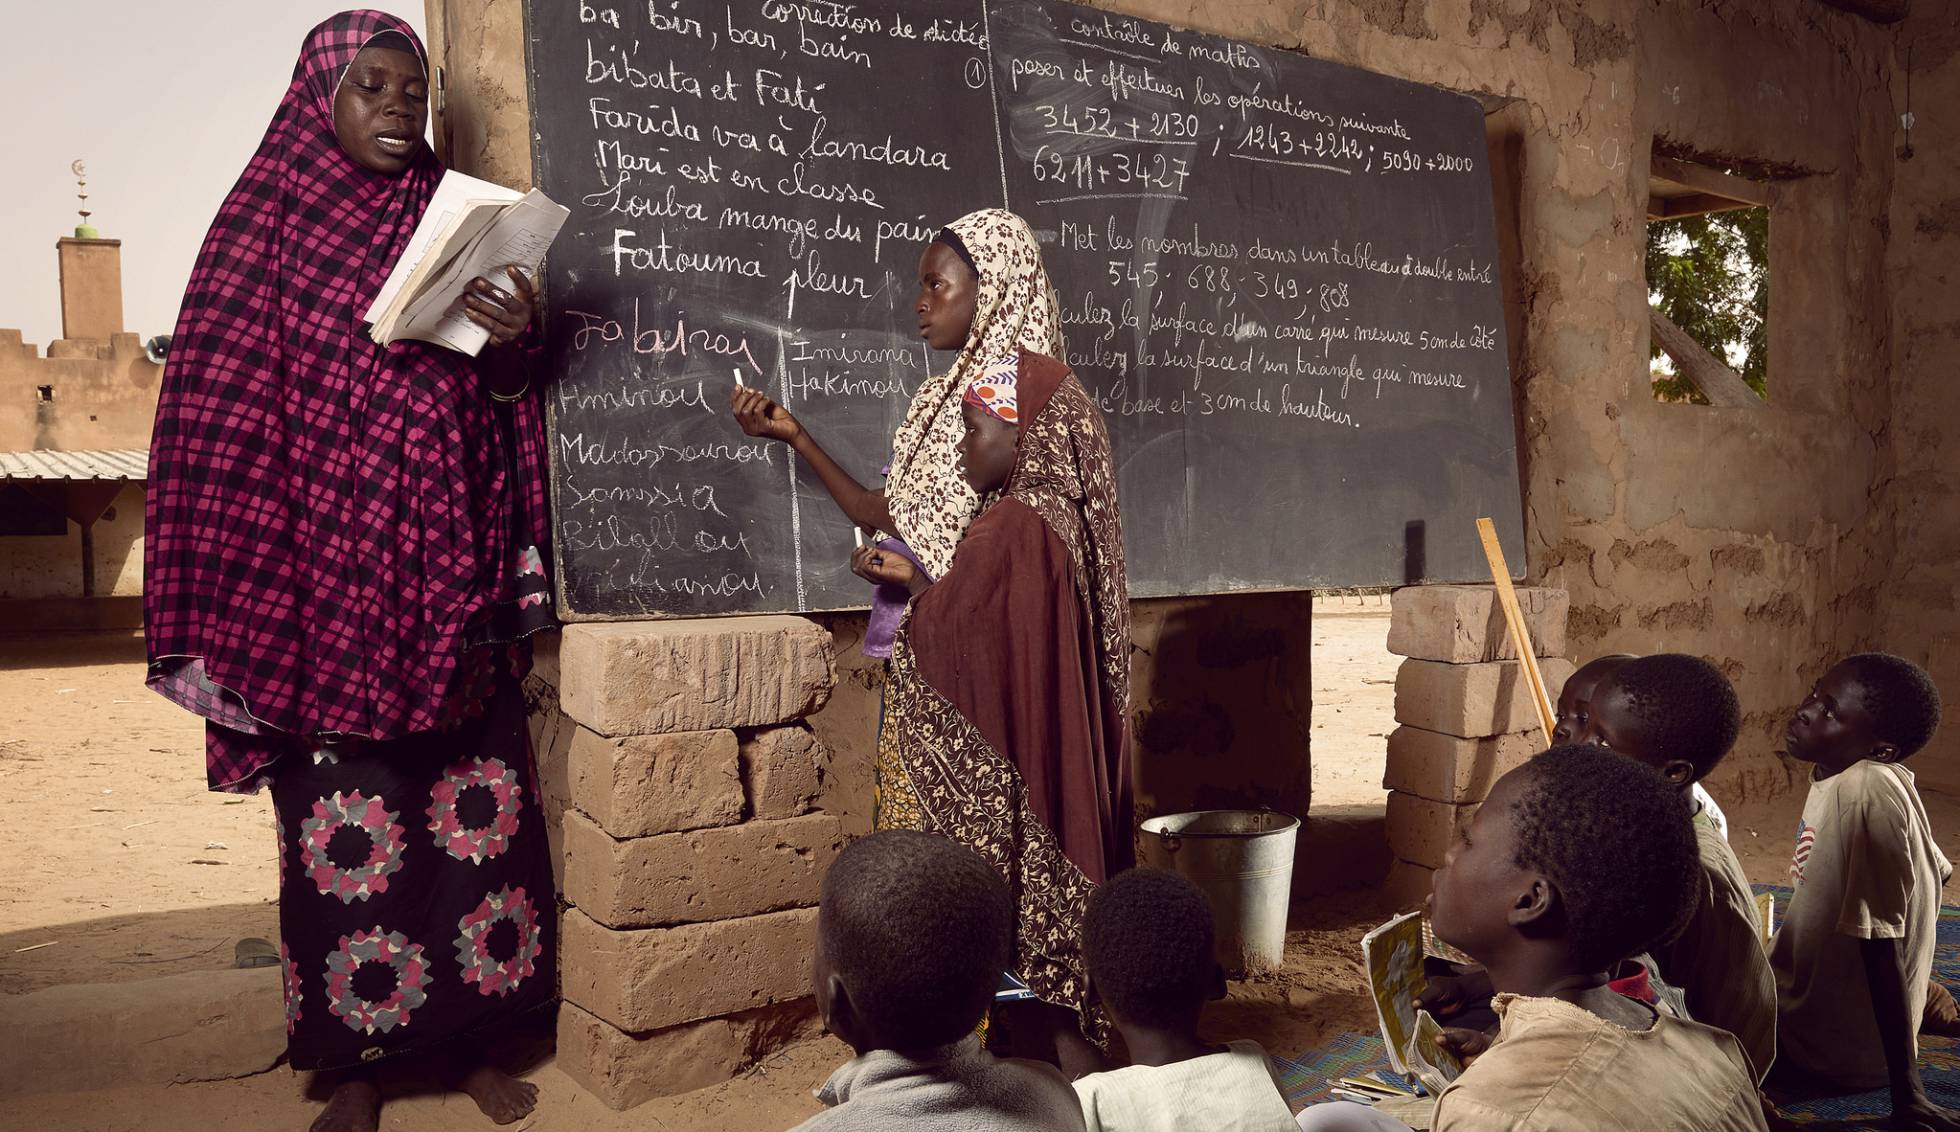 Correction de dictée
ba, bir, bar, bain
bibata et Fati
Farida va à landara
Mari est en classe
Zouba mange du pain
Fatouma pleur
Jabirai
Aminou
Madassourou
Samssia
Bilallou
Imirana
Hakimou
①
contrôle de maths
poser et effectuer les opérations suivante
3452 + 2130 ; 1243 + 2242 ; 5090 + 2000
6211 + 3427
Met les nombres dans un tableau à double entré
545; 688; 349; 808
culez la surface d'un carré qui mesure 5cm de côté
culez la surface d'un triangle qui mesure
de base et 3cm de hauteur.